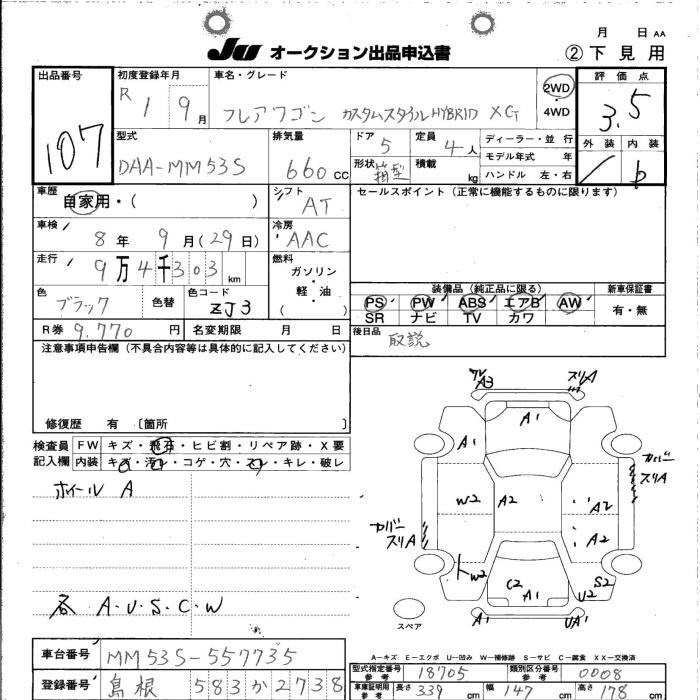 月 日 AA
JU オークション出品申込書 ②下見用
出品番号 107
初度登録年月 R 1 9月
車名・グレード フレアワゴン カスタムスタイルHYBRID XG
2WD・4WD
評価点 3.5
外装 内装 b
型式 DAA-MM53S
排気量 660 cc
ドア 5 定員 4人
形状 箱型 積載 kg
ディーラー・並行
モデル年式 年
ハンドル 左・右
車歴 自家用・( )
シフト AT
セールスポイント (正常に機能するものに限ります)
車検 8年 9月(29日)
冷房 AAC
走行 9万4千303km
燃料 ガソリン・軽・油 ( )
色 ブラック 色替 色コード ZJ3
R券 9,770円 名変期限 月 日
装備品 (純正品に限る) 新車保証書
PS PW ABS エアB AW 有・無
SR ナビ TV カワ
後日品 取説
注意事項申告欄 (不具合内容等は具体的に記入してください)
修復歴 有 〔箇所 〕
検査員記入欄
FW キズ・飛石・ヒビ割・リペア跡・X要
内装 キズ・汚れ・コゲ・穴・スレ・キレ・破レ
ホイール A
各 A・U・S・C・W
A3 スリA
A1
A1
カバースリA
W2 A2 A2
カバースリA A2
W2 C2 S2
A1 U2
A1 UA1
スペア
A－キズ E－エクボ U－凹み W－補修跡 S－サビ C－腐食 XX－交換済
車台番号 MM53S-557735
登録番号 島根 583か2738
型式指定番号 参考 18705 類別区分番号 参考 0008
車庫証明用 参考 長さ 339 cm 幅 147 cm 高さ 178 cm